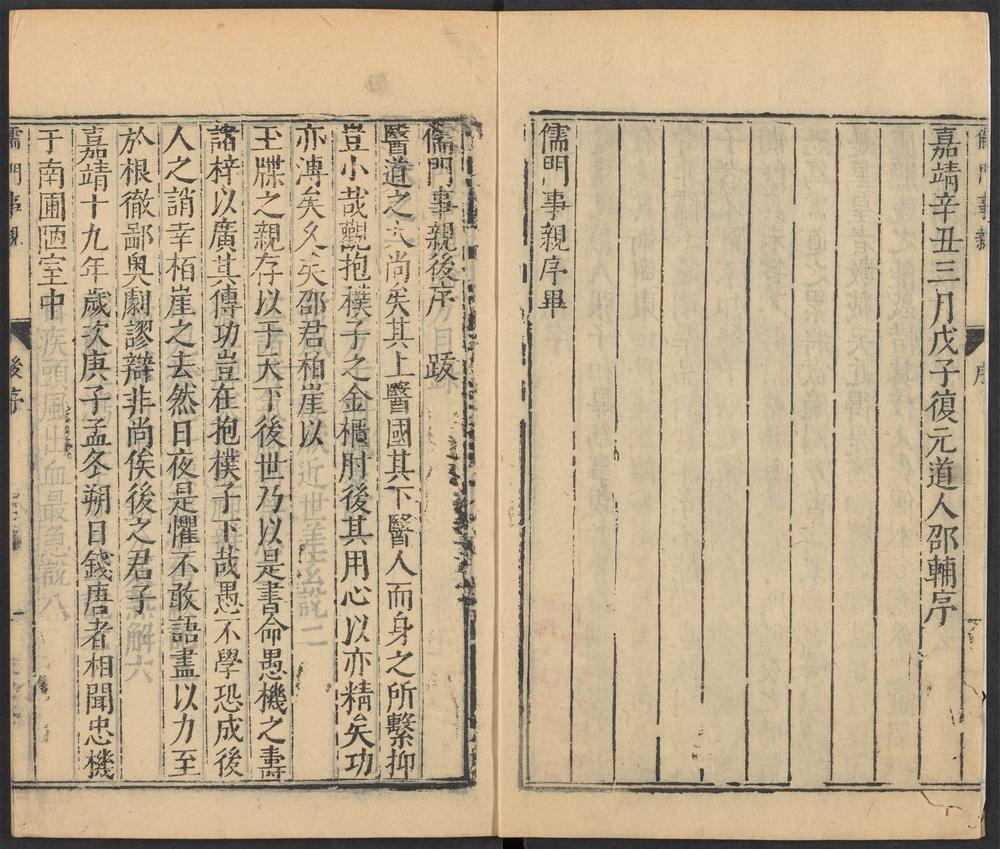 儒門事親 序
嘉靖辛丑三月戊子復元道人邵輔序
儒門事親序畢
儒門事親後序 跋
醫道之大尚矣其上醫國其下醫人而身之所繫抑
豈小哉觀抱樸子之金櫃肘後其用心以亦精矣功
亦溥矣久矣邵君柏崖以
王牒之親存以于天下後世乃以是書命愚機之壽
諸梓以廣其傳功豈在抱樸子下哉愚不學恐成後
人之誚幸柏崖之去然日夜是懼不敢語盡以力至
於根徹鄙奧劇謬辯非尚俟後之君子
嘉靖十九年歲次庚子孟冬朔日錢唐者相聞忠機
于南圃陋室中
儒門事親 後序 一